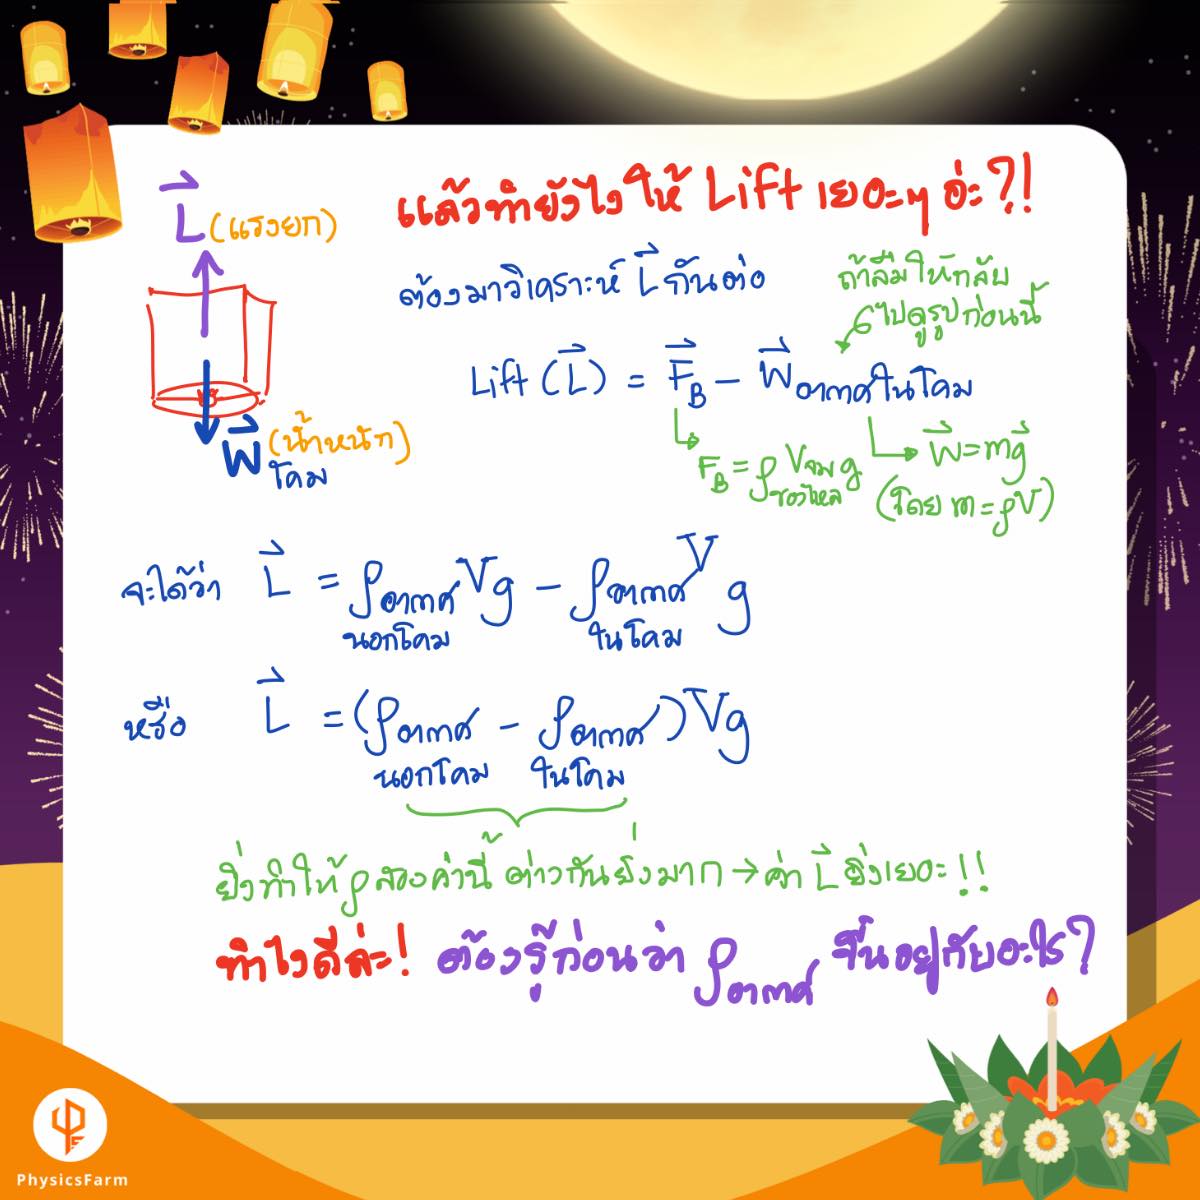 L (แรงยก)
แล้วทำยังไงให้ Lift เยอะๆ อ่ะ?!
ต้องมาวิเคราะห์ L กันต่อ
ถ้าลืมให้กลับ
ไปดูรูปก่อนนี้
Lift (L) = F_B - W อากาศในโคม
W (น้ำหนัก)
โคม
F_B = ρ V จม g
ของไหล
W = mg
(โดย m = ρV)
จะได้ว่า L = ρ อากาศ Vg - ρ อากาศ V g
นอกโคม ในโคม
หรือ L = (ρ อากาศ - ρ อากาศ) Vg
นอกโคม ในโคม
ยิ่งทำให้ ρ สองค่านี้ ต่างกันยิ่งมาก → ค่า L ยิ่งเยอะ !!
ทำไงดีล่ะ! ต้องรู้ก่อนว่า ρ อากาศ ขึ้นอยู่กับอะไร?
PhysicsFarm